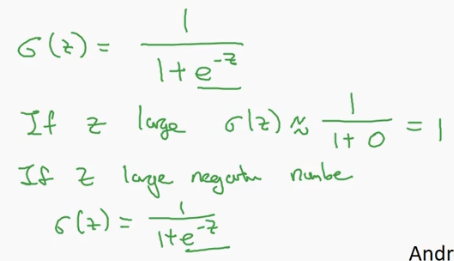 σ(z) = 1 / (1 + e^-z)
If z large σ(z) ≈ 1 / (1 + 0) = 1
If z large negative number
σ(z) = 1 / (1 + e^-z)
Andr